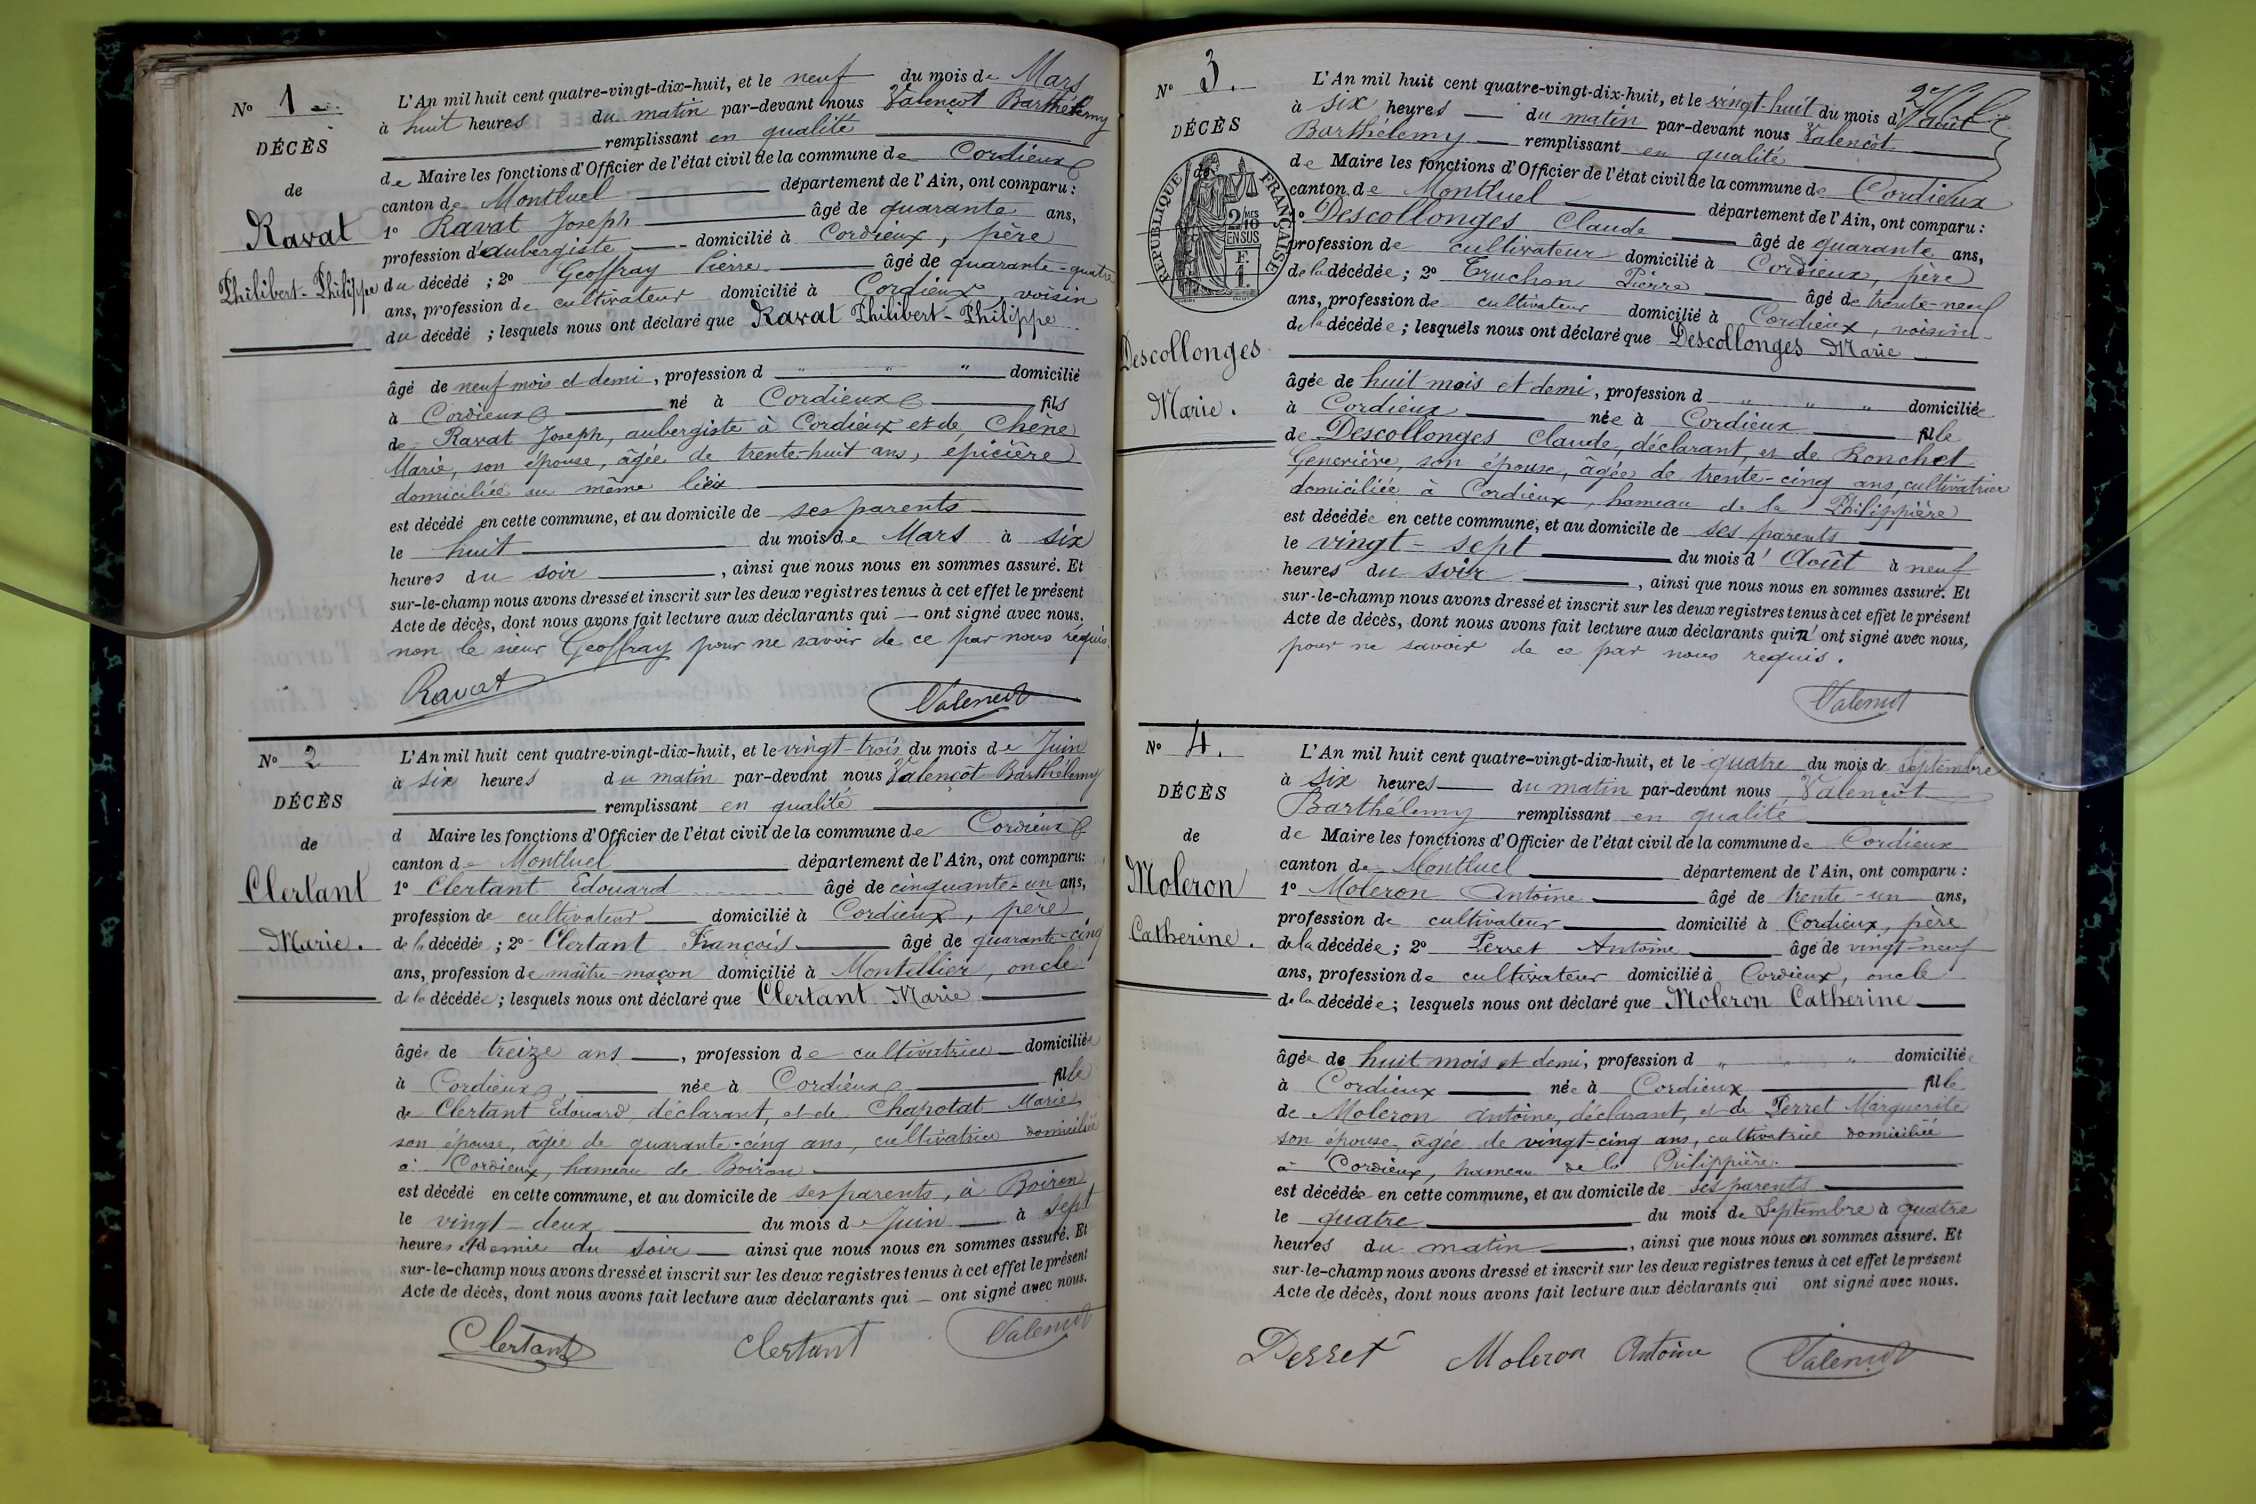 No 1
DÉCÈS
de
Ravat
Philibert-Philippe
L'An mil huit cent quatre-vingt-dix-huit, et le neuf du mois de Mars
à huit heures du matin par-devant nous Valençot Barthélemy
remplissant en qualité
de Maire les fonctions d'Officier de l'état civil de la commune de Cordieux
canton de Montluel département de l'Ain, ont comparu :
1o Ravat Joseph âgé de quarante ans,
profession d'aubergiste domicilié à Cordieux, père
du décédé ; 2o Geoffray Pierre âgé de quarante-quatre
ans, profession de cultivateur domicilié à Cordieux voisin
du décédé ; lesquels nous ont déclaré que Ravat Philibert-Philippe
âgé de neuf mois et demi, profession d " " " domicilié
à Cordieux né à Cordieux fils
de Ravat Joseph, aubergiste à Cordieux et de Chêne
Marie, son épouse, âgée de trente-huit ans, épicière
domiciliée au même lieu
est décédé en cette commune, et au domicile de ses parents
le huit du mois de Mars à six
heures du soir, ainsi que nous nous en sommes assuré. Et
sur-le-champ nous avons dressé et inscrit sur les deux registres tenus à cet effet le présent
Acte de décès, dont nous avons fait lecture aux déclarants qui — ont signé avec nous.
non le sieur Geoffray pour ne savoir de ce par nous requis.
Ravat Valençot
No 2
DÉCÈS
de
Clertant
Marie.
L'An mil huit cent quatre-vingt-dix-huit, et le vingt-trois du mois de Juin
à six heures du matin par-devant nous Valençot Barthélemy
remplissant en qualité
d Maire les fonctions d'Officier de l'état civil de la commune de Cordieux
canton de Montluel département de l'Ain, ont comparu:
1o Clertant Edouard âgé de cinquante-un ans,
profession de cultivateur domicilié à Cordieux, père
de la décédée ; 2o Clertant François âgé de quarante-cinq
ans, profession de maître-maçon domicilié à Montellier, oncle
de la décédée ; lesquels nous ont déclaré que Clertant Marie
âgée de treize ans, profession de cultivatrice domiciliée
à Cordieux née à Cordieux fille
de Clertant Edouard, déclarant, et de Chapotat Marie
son épouse, âgée de quarante-cinq ans, cultivatrice domiciliée
à Cordieux, hameau de Boiron
est décédé en cette commune, et au domicile de ses parents, à Boiron
le vingt-deux du mois de Juin à sept
heures et demie du soir ainsi que nous nous en sommes assuré. Et
sur-le-champ nous avons dressé et inscrit sur les deux registres tenus à cet effet le présent
Acte de décès, dont nous avons fait lecture aux déclarants qui — ont signé avec nous.
Clertant Clertant Valençot
No 3.
DÉCÈS
de
RÉPUBLIQUE FRANÇAISE
2/10 MES
EN SUS
F.
1.
Descollonges
Marie.
L'An mil huit cent quatre-vingt-dix-huit, et le vingt-huit du mois d'août
à six heures du matin par-devant nous Valençot
Barthélemy remplissant en qualité
de Maire les fonctions d'Officier de l'état civil de la commune de Cordieux
canton de Montluel département de l'Ain, ont comparu :
1o Descollonges Claude âgé de quarante ans,
profession de cultivateur domicilié à Cordieux, père
de la décédée ; 2o Truchon Pierre âgé de trente-neuf
ans, profession de cultivateur domicilié à Cordieux, voisin
de la décédée ; lesquels nous ont déclaré que Descollonges Marie
âgée de huit mois et demi, profession d " " " domiciliée
à Cordieux née à Cordieux fille
de Descollonges Claude, déclarant, et de Ronchet
Geneviève, son épouse, âgée de trente-cinq ans, cultivatrice
domiciliée à Cordieux, hameau de la Philippière
est décédée en cette commune, et au domicile de ses parents
le vingt-sept du mois d'Août à neuf
heures du soir, ainsi que nous nous en sommes assuré. Et
sur-le-champ nous avons dressé et inscrit sur les deux registres tenus à cet effet le présent
Acte de décès, dont nous avons fait lecture aux déclarants qui n'ont signé avec nous,
pour ne savoir de ce par nous requis.
Valençot
No 4.
DÉCÈS
de
Moleron
Catherine.
L'An mil huit cent quatre-vingt-dix-huit, et le quatre du mois de Septembre
à six heures du matin par-devant nous Valençot
Barthélemy remplissant en qualité
de Maire les fonctions d'Officier de l'état civil de la commune de Cordieux
canton de Montluel département de l'Ain, ont comparu :
1o Moleron Antoine âgé de trente-un ans,
profession de cultivateur domicilié à Cordieux, père
de la décédée ; 2o Perret Antoine âgé de vingt-neuf
ans, profession de cultivateur domicilié à Cordieux, oncle
de la décédée ; lesquels nous ont déclaré que Moleron Catherine
âgée de huit mois et demi, profession d " " " domiciliée
à Cordieux née à Cordieux fille
de Moleron Antoine, déclarant, et de Perret Marguerite
son épouse, âgée de vingt-cinq ans, cultivatrice domiciliée
à Cordieux, hameau de la Philippière.
est décédée en cette commune, et au domicile de ses parents
le quatre du mois de Septembre à quatre
heures du matin, ainsi que nous nous en sommes assuré. Et
sur-le-champ nous avons dressé et inscrit sur les deux registres tenus à cet effet le présent
Acte de décès, dont nous avons fait lecture aux déclarants qui ont signé avec nous.
Perret Moleron Antoine Valençot